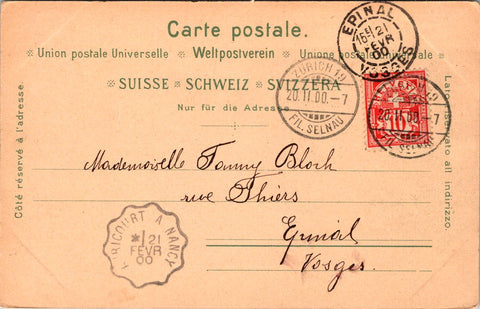 Carte postale.
Union postale Universelle Weltpostverein Unione postale universale
SUISSE SCHWEIZ SVIZZERA
Nur für die Adresse
Côté réservé à l'adresse.
Lato riservato all indirizzo.
EPINAL
21
FEVR
00
VOSGES
ZÜRICH 19
20.II.00.-7
FIL. SELNAU
HELVETIA
10
20.II.00.-7
SELNAU
Mademoiselle Fanny Bloch
rue Thiers
Epinal
Vosges.
AVRICOURT A NANCY
21
FEVR
00